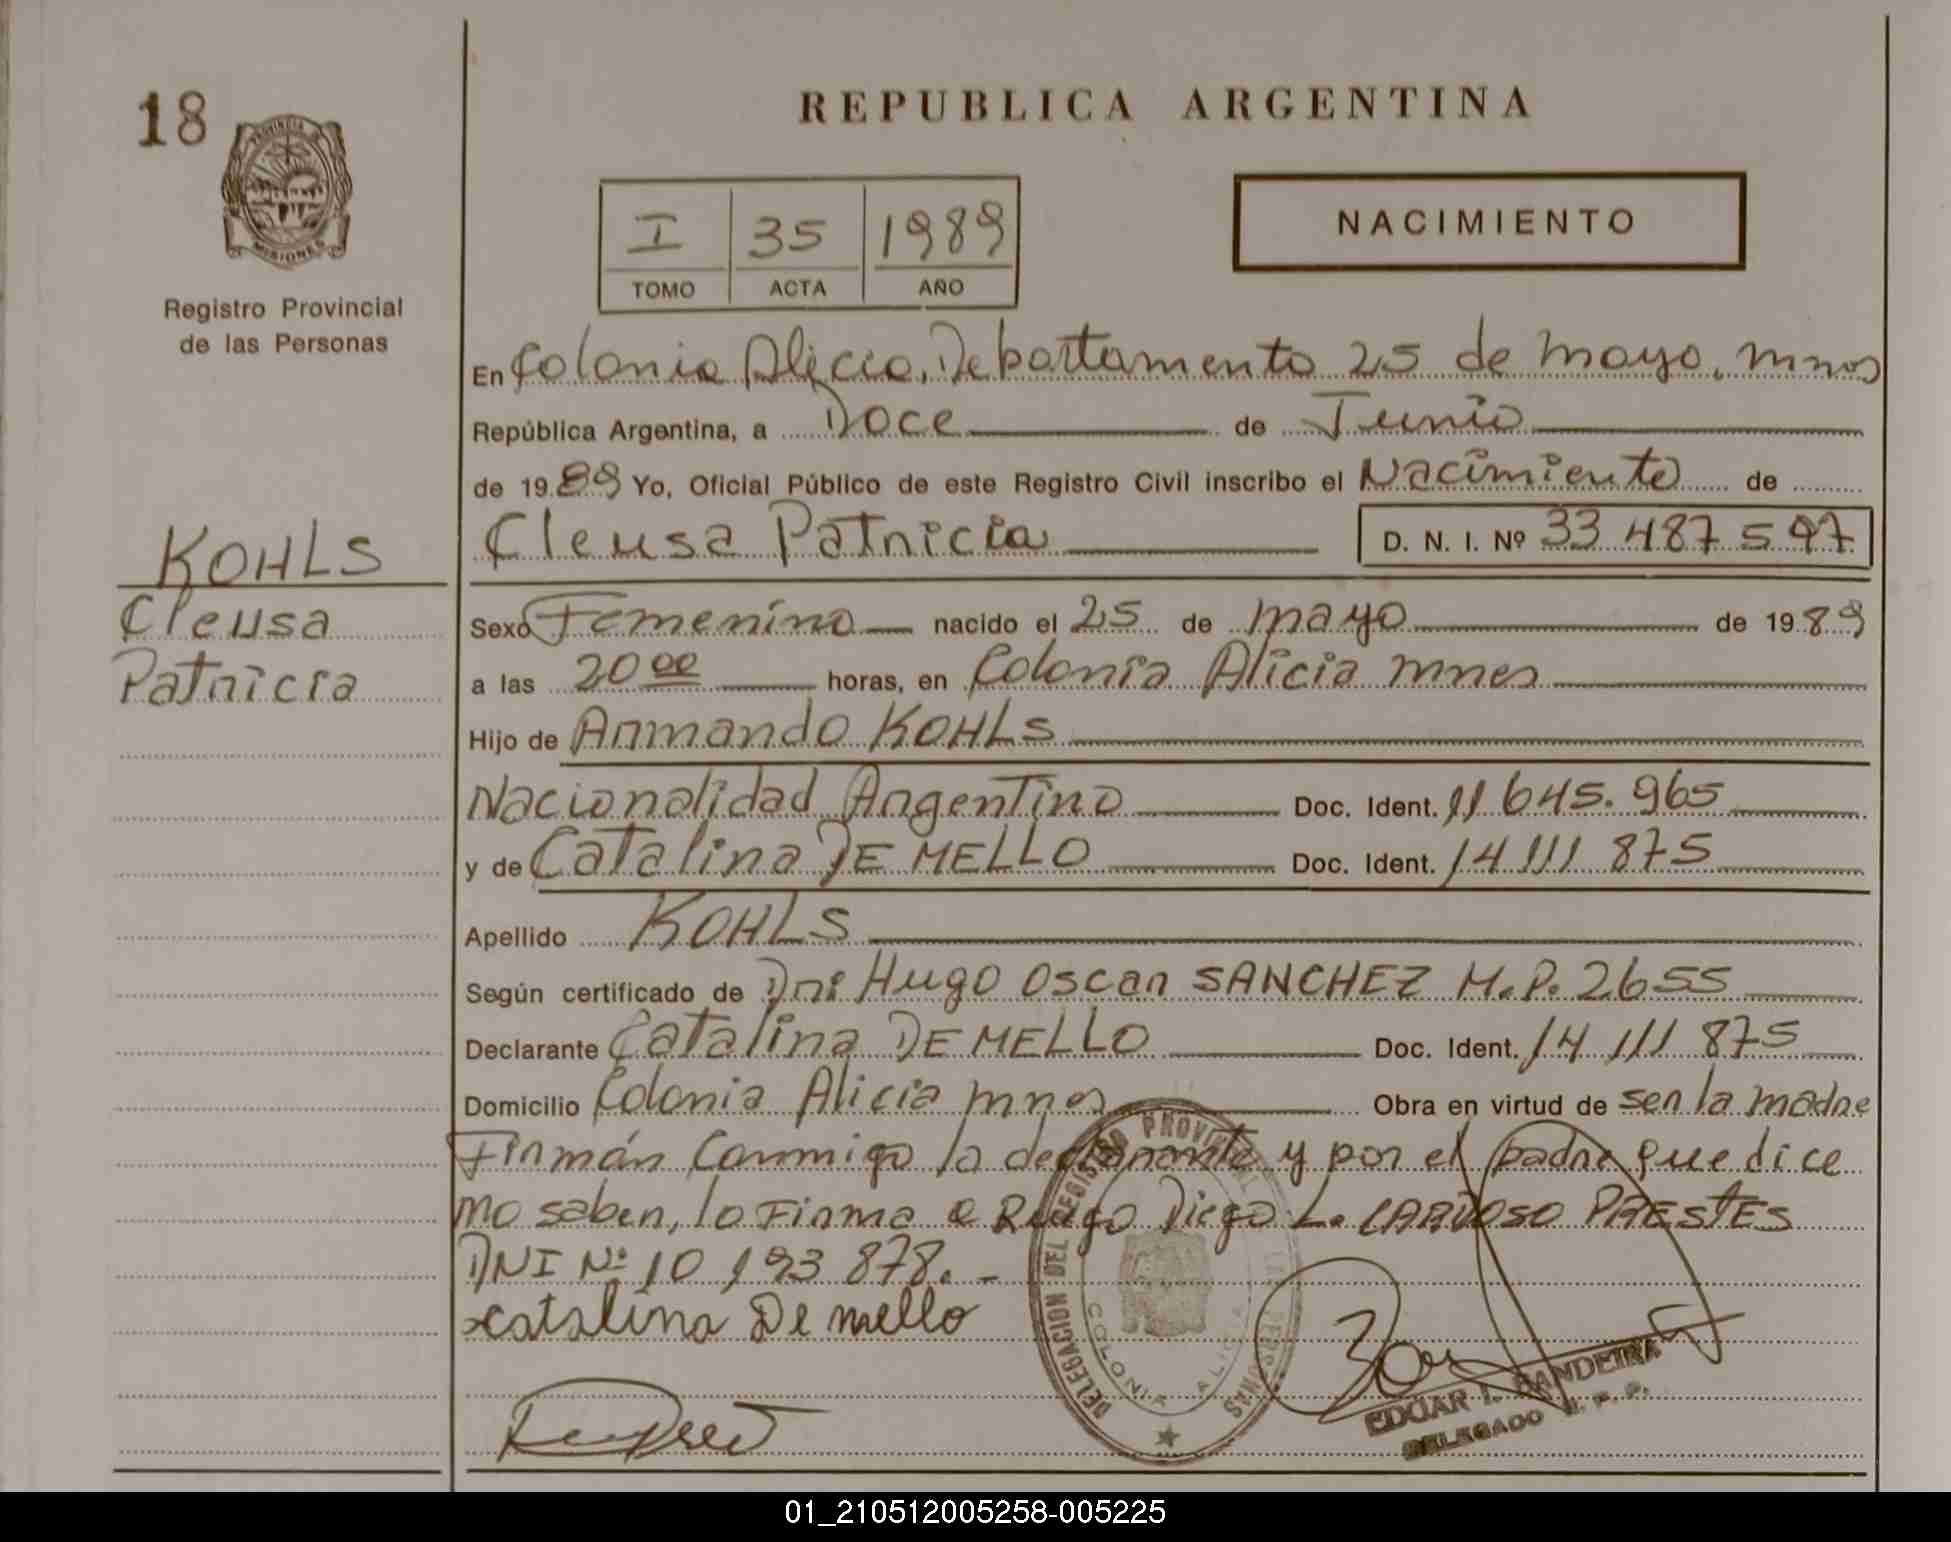 18
PROVINCIA D
MISIONES
Registro Provincial
de las Personas
REPUBLICA ARGENTINA
I 35 1989
TOMO ACTA AÑO
NACIMIENTO
En Colonia Alicia, Departamento 25 de mayo, mnes
República Argentina, a Doce de Junio
de 1989 Yo, Oficial Público de este Registro Civil inscribo el Nacimiento de
Cleusa Patricia D. N. I. Nº 33 487 597
KOHLS
Cleusa
Patricia
Sexo Femenino nacido el 25 de mayo de 1989
a las 20 00 horas, en Colonia Alicia mnes
Hijo de Armando KOHLS
Nacionalidad Argentino Doc. Ident. 11 645.965
y de Catalina DE MELLO Doc. Ident. 14 111 875
Apellido KOHLS
Según certificado de Dr: Hugo Oscar SANCHEZ M.P. 2655
Declarante Catalina DE MELLO Doc. Ident. 14 111 875
Domicilio Colonia Alicia mnes Obra en virtud de ser la madre
Firmán Conmigo la declarante y por el padre que dice
no saber, lo Firma a Ruego Diego L. CARDOSO PRESTES
DNI Nº 10 193 878.-
catalina De mello
DELEGACION DEL REGISTRO PROVINCIAL DE LAS PERSONAS
COLONIA ALICIA
EDGAR I. BANDEIRA
DELEGADO R. P. P.
01_210512005258-005225